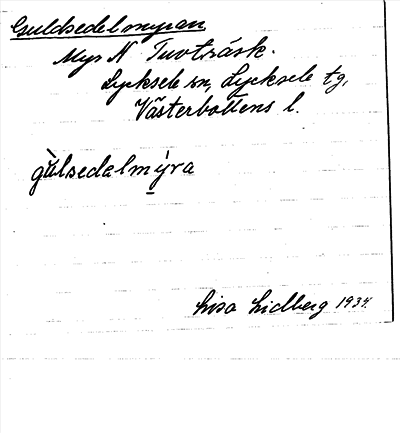 Guldsedelmyran
Myr N Tuvträsk.
Lycksele sn, Lycksele tg,
Västerbottens l.
gùlsedelmýra
Lisa Lidberg 1934.